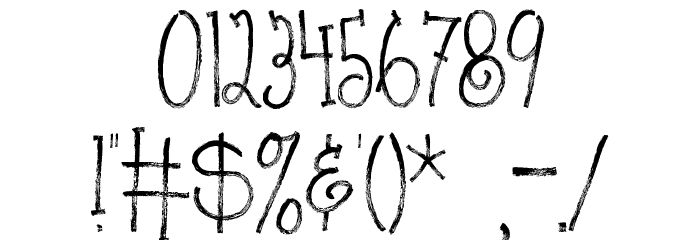 0123456789
!"#$%&'()* ,-./